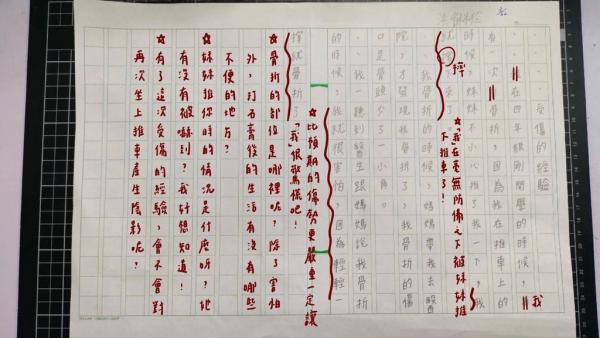 受傷的經驗
在四年級剛開學的時候，我
有一次骨折，因為我在推車上的
時候，妹妹不小心推了我一下，我
就
摔
★「我」在毫無防備之下被妹妹推
下推車了！
我骨折的時候，媽媽帶我去醫
院，才發現我骨折了，我骨折的傷
口是骨頭了一小角
我一聽到醫生跟媽媽說我骨折
的時候，我就很害怕，因為輕輕一
摔就骨折了
★比預期的傷勢更嚴重一定讓
「我」很驚慌吧！
★骨折的部位是哪裡呢？除了害怕
外，打石膏後的生活有沒有哪些
不便的地方？
★妹妹推你時的情況是什麼呀？她
有沒有被嚇到？我好想知道！
★有了這次受傷的經驗，會不會對
再次坐上推車產生陰影呢？